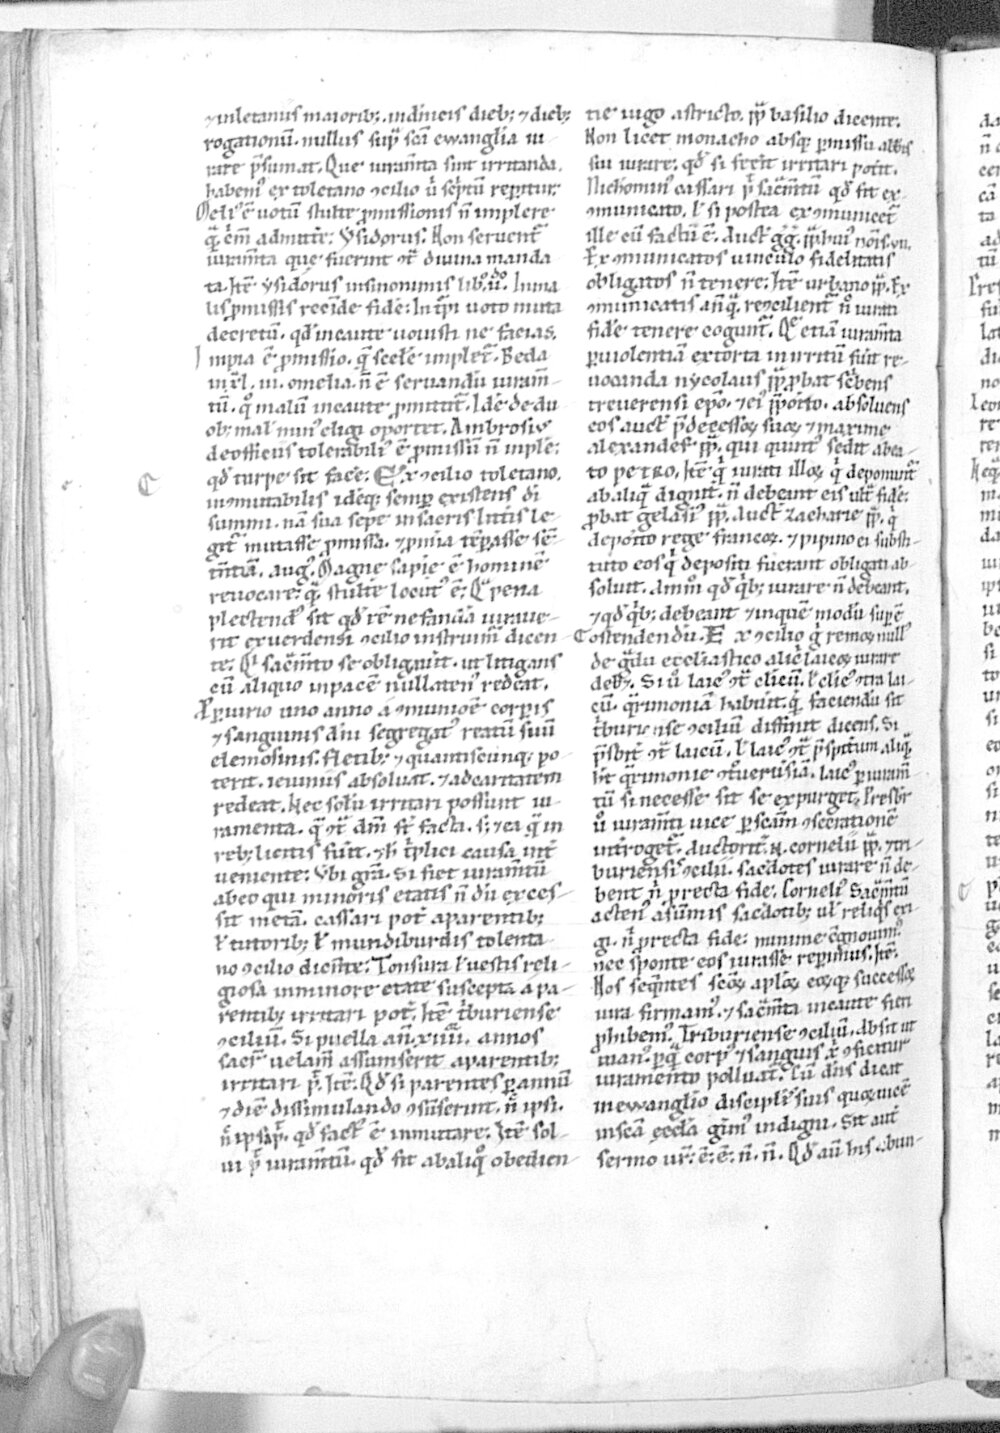 ⁊ inletanus maiorib; indn̄icis dieb; ⁊ dieb;
rogationū. nullus sup̄ scā ewanglia iu-
rare p̄sumat. Que iuram̄ta sint irritanda.
habem᷒ ex toletano ɔcilio ū sc̄ptū repitur:
Meli᷒ ē uotū stulte ꝓmissionis n̄ implere
q̄ c̄m̄ admitte: Ysidorus. Non seruent᷑
iuram̄ta que fuerint ɔt᷑ diuina manda
ta. Itē ysidorus insinonimis lib᷒. ii᷒. Inma
lis ꝓmissis rescinde fidē: Int᷑pi uoto muta
decretū. qd̄ incaute uouisti ne facias.
Impia ē ꝓmissio. q̄ scelere implet᷑. Beda
in omelia. n̄ ē seruandū iuram̄-
tū. q᷒ malū incaute ꝓmittit᷑. Idē de du
ob; mal᷒ min᷒ eligi oportet. Ambrosiꝰ
de officiis tolerabili᷒ ē ꝓmissū n̄ imple᷑
qd̄ turpe sit face᷑: Ex ɔcilio toletano.
inɔmutabilis ideq; semp existens d̄i
summi. nā sua sepe insacris litt̄is le-
git᷑ mutasse ꝓmissa. ⁊ pmīa tēpasse sē-
tn̄tiā. aug᷒. Magne sapīe ē hominē
reuocare: q̄ stulte locut᷒ ē; Qª pena
plectend᷒ sit qd̄ rē nefandā iuraue-
rit ex uerdensi ɔcilio instruim̄ dicen
te: Qͥ sac̄m̄to se obligauit. ut litigans
cū aliquo inpacē nullaten᷒ redeat.
ꝓ piurio uno anno a ɔmunioē corpis
⁊ sanguinis dn̄i segregat᷒ reatū suū
elemosinis. fletib; ⁊ quantiscunq; po
terit. ieiuniis absoluat. ⁊ adcaritatem
redeat. Nec solū irritari possunt iu-
ramenta. q̄ ɔt᷑ dm̄ st̄ facta. s; ⁊ ea q̄ in
reb; licitis fiūt. ⁊ h̄ t᷑plici causa int᷑
ueniente: Vbi grā. Si fiet iuram̄tū
abeo qui minoris etatis n̄ dū exces-
sit metā. cassari pot᷑ aparentib;
ł tutorib; ł mundiburdis tolenta
no ɔcilio dicēte: Tonsura ł uestis reli-
giosa inminore etate suscepta á pa-
rentib; irritari pot᷑. Itē t᷑iburiense
ɔciliū. Si puella an̄. xiiii. annos
sacr̄ uelam̄ assumserit aparentib;
irritari p̄. Itē. Qd̄ si parentes p annū
⁊ diē dissimulando ɔsēserint. n̄ ipsi.
n̄ ipsa p̄. qd̄ fact᷒ ē inmutare. Itē sol-
ui p̄ iuram̄tū. qd̄ fit abaliq᷒ obedien-
tie iugo astricto. pp̄ basilio dicente.
Non licet monacho absq; pmissu abb̄is
sui iurare: qd̄ si fecit irritari potit.
Nichomin᷒ cassari p̄ sac̄m̄tū qd̄ fit ex-
ɔmunicato. ł si postea exɔmunicet᷑
ille cū factū ē. Auct᷑ gḡ. pp̄ hui᷒ nois. vii.
Exɔmunicatos uinculo fidelitatis
obligatos n̄ tenere: Itē urbano pp̄. Ex
ɔmunicatis an̄q̄ reɔcilient᷑ n̄ iurati
fidē tenere cogunt᷑. Qͥ etiā iuram̄ta
p uiolentiā extorta inirritū sint re-
uocanda nycolaus pp̄ ꝓbat sc̄bens
treuerensi ep̄o. ⁊ ei᷒ pp̄osito. absoluens
eos auct᷑ p̄decessoꝝ suoꝝ ⁊ maxime
alexandri pp̄. qui quint᷒ sedit abea-
to petro. Itē q̄ iurati illoꝝ q̄ deponunt᷑
abaliq̄ dignit̄. n̄ debeant eis ult᷑ fidē:
ꝓbat gelasi᷒ pp̄. auct᷑ zacharie pp̄. q̄
deposito rege francoꝝ. ⁊ pipino ei substi-
tuto eos q̄ depositi fuerant obligati ab-
soluit. Amm̄ qd̄ qͥb; iurare n̄ debeant.
⁊ qd̄ qͥb; debeant ⁊ inquē modū supē
ostendendū. Ex ɔcilio remoꝝ null᷒
de gᵃdu ecclīastico alic̄ laicoꝝ iurare
deb;. Si ū laic᷒ ɔt᷑ clicū. ł clic᷒ ɔtra lai-
cū. q̄rimoniā habuit. q̄ faciendū sit
t᷑iburiense ɔciliū diffinit dicens. Si
p̄sbit᷑ ɔt᷑ laicū. ł laic᷒ ɔt᷑ p̄sbit̄um aliq̄
ht̄ q̄rimonie ɔt᷑ouersiā. laic᷒ p iuram̄-
tū si necesse sit se expurget. Presbit᷑
ū iuram̄ti uice p scam̄ ɔsecrationē
int᷑roget᷑. Auctorit̄. cornelii pp̄. ⁊ tri-
buriensi᷒ ɔcilii. sac̄dotes iurare n̄ de-
bent n̄ precta fide. Corneli᷒. Sac̄m̄tū
acten᷒ asūmis sac̄dotib; uł reliqͥs exi-
gi. n̄ precta fide: minime cognouim᷒.
nec sponte eos iurasse repimus. Itē.
Nos seq̄ntes scōꝝ aploꝝ eoꝝq; successoꝝ
iura firmam᷒. ⁊ sac̄m̄ta incaute fieri
ꝓhibem᷒. Triburiense ɔciliū. Absit ut
man᷒ pq̄ corp᷒ ⁊ sanguis xp̄i ɔficitur
iuramento polluat᷑. Cū dn̄s dicat
inewanglio discipulis suis quoꝝ uicē
inscā ecclā gim᷒ indigni. Sit aut̄
sermo ur̄: ē. ē. n̄. n̄. Qd̄ aū his